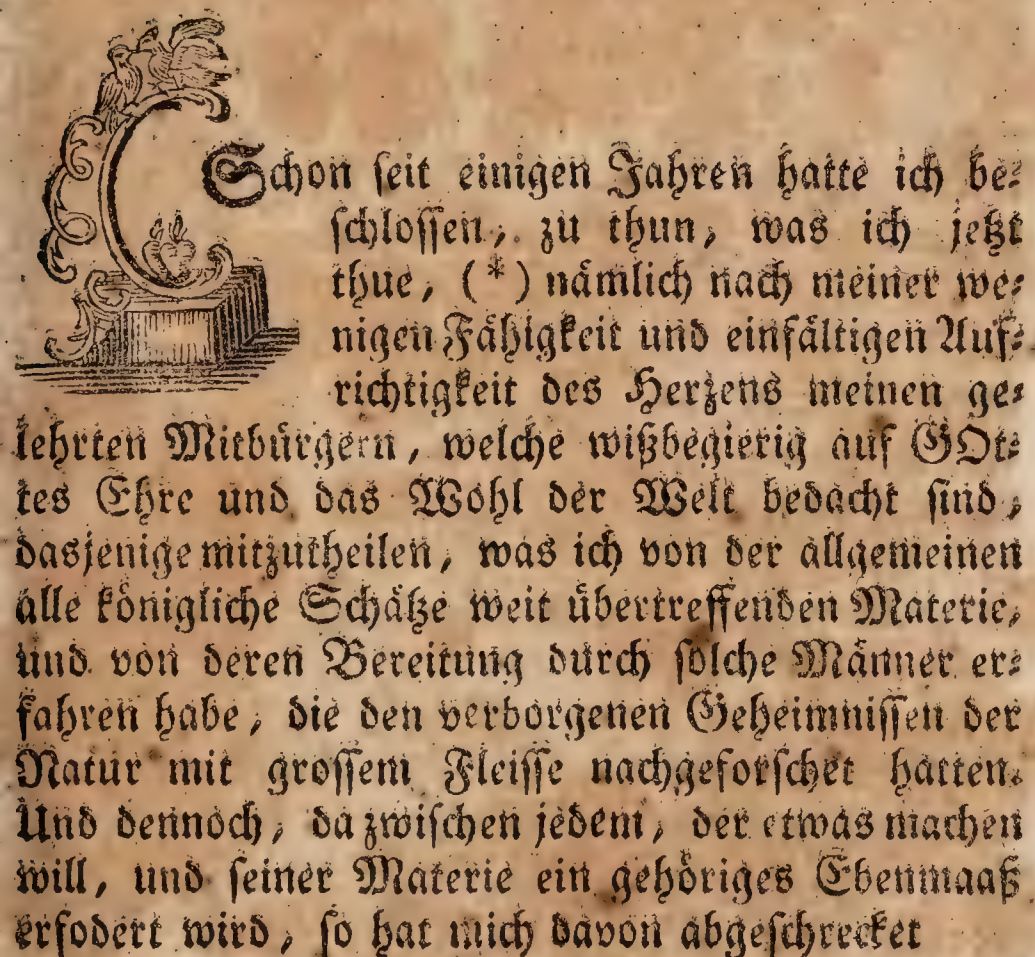 Schon seit einigen Jahren hatte ich be⸗
schlossen, zu thun, was ich jetzt
thue, (*) nämlich nach meiner we⸗
nigen Fähigkeit und einfältigen Auf⸗
richtigkeit des Herzens meinen ge⸗
lehrten Mitbürgern, welche wißbegierig auf GOt⸗
tes Ehre und das Wohl der Welt bedacht sind,
dasjenige mitzutheilen, was ich von der allgemeinen
alle königliche Schätze weit übertreffenden Materie,
und von deren Bereitung durch solche Männer er⸗
fahren habe, die den verborgenen Geheimnissen der
Natur mit grossem Fleisse nachgeforschet hatten.
Und dennoch, da zwischen jedem, der etwas machen
will, und seiner Materie ein gehöriges Ebenmaaß
erfodert wird, so hat mich davon abgeschrecket